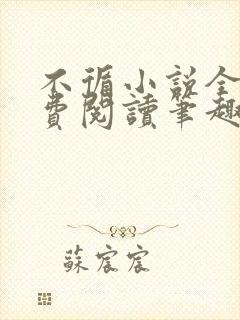 不循小說全
費閱讀筆趣
蘇宸宸